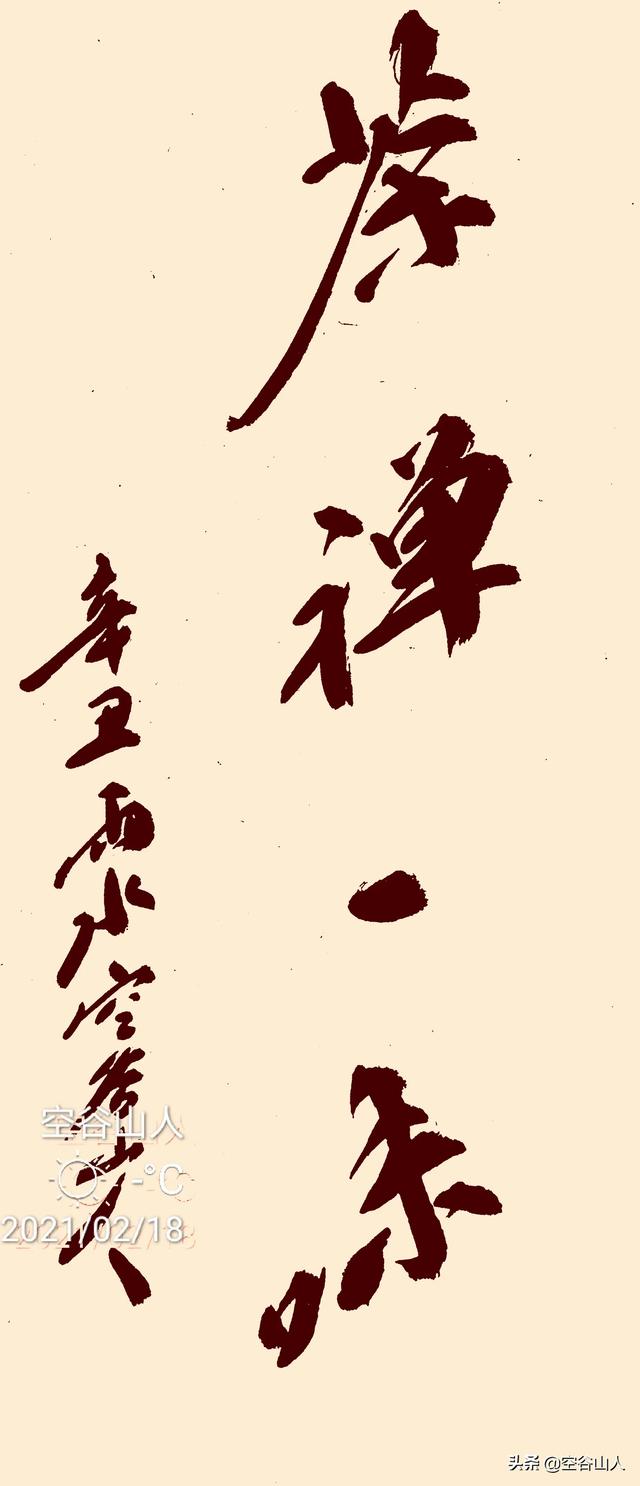 茶禅一味
辛丑雨水空谷山人
空谷山人
-°C
2021/02/18
头条 @空谷山人